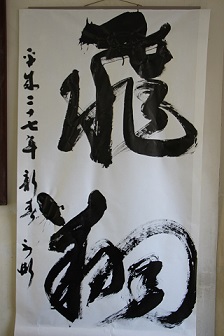 龍翔
平成二十七年新春